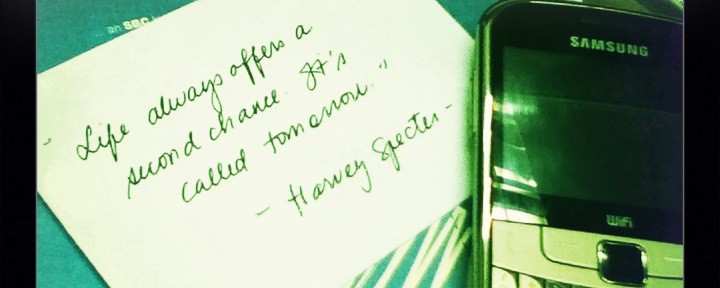 an SBC
Life always offers a
second chance. It's
called tomorrow."
- Harvey Specter -
SAMSUNG
WiFi